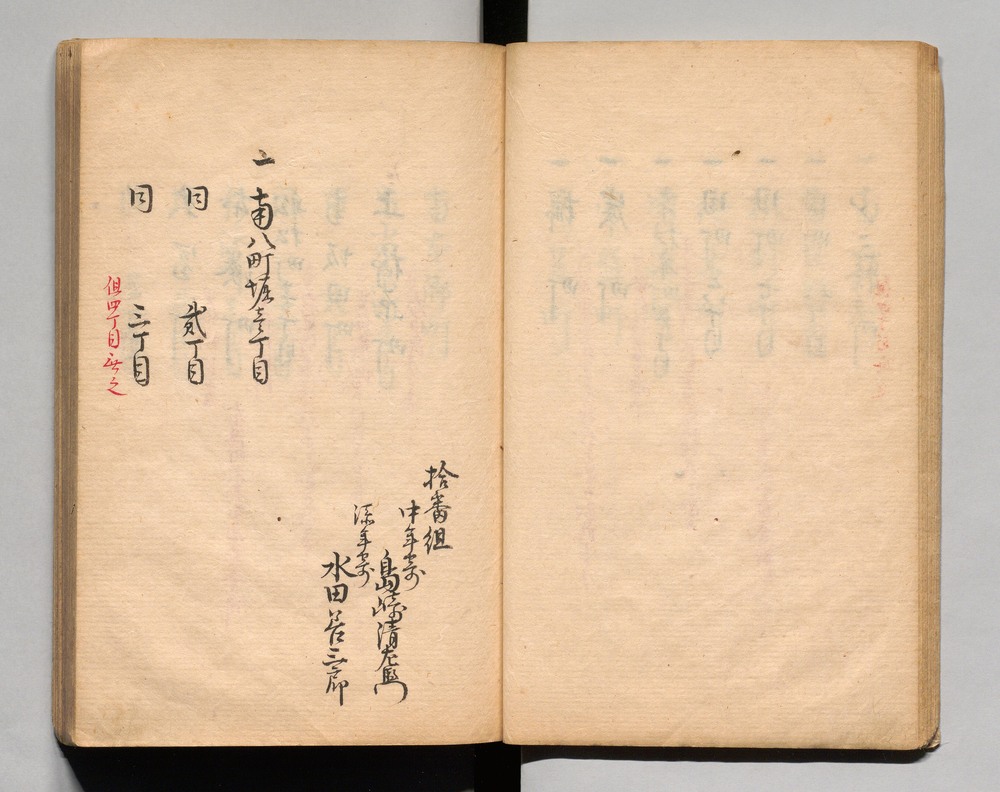 拾番組
中年寄
島崎清左衛門
添年寄
水田善三郎
一 南八町堀壱丁目
同 貳丁目
同 三丁目
但四丁目無之